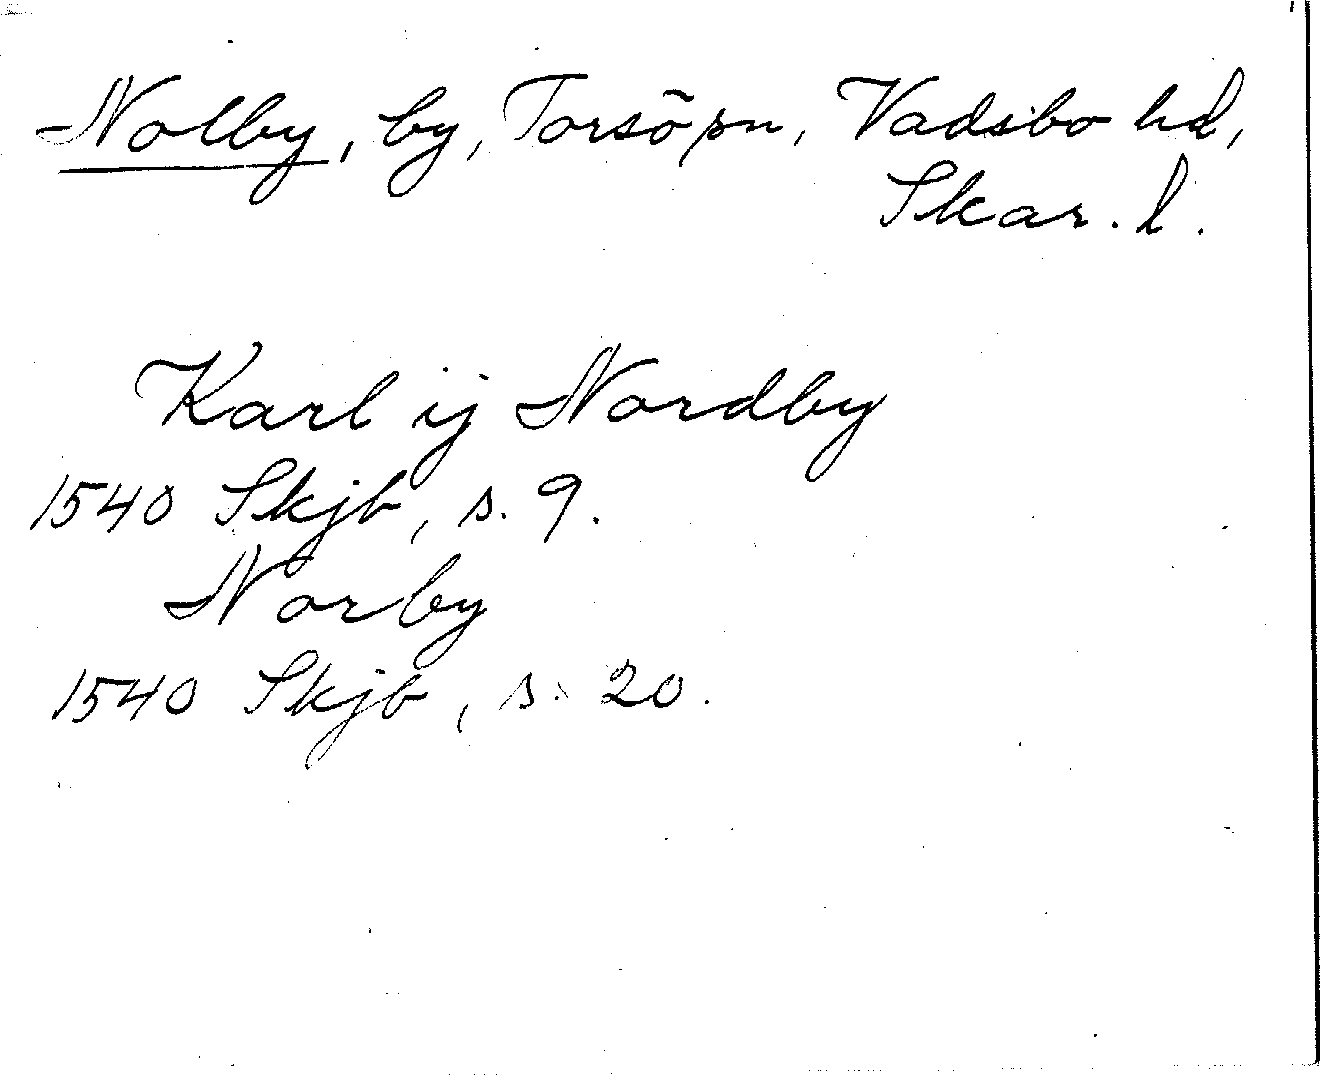 Nolby, by, Torsö pn, Vadsbo hd,
Skar. l.
Karl ij Nordby
1540 Skjb, s. 9.
Norby
1540 Skjb, s. 20.